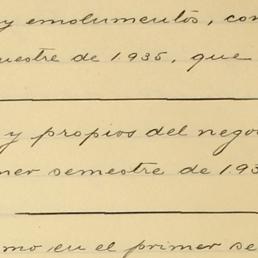 y emolumentos, con
uestre de 1935, que
y propios del nego
mer semestre de 193
mo en el primer se